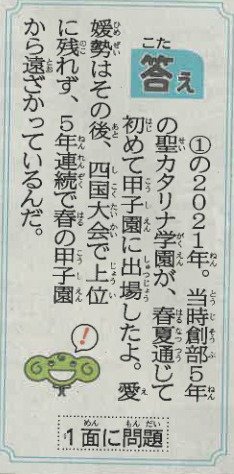 答え
①の2021年。当時創部5年
の聖カタリナ学園が、春夏通じて
初めて甲子園に出場したよ。愛
媛勢はその後、四国大会で上位
に残れず、5年連続で春の甲子園
から遠ざかっているんだ。
!
1面に問題